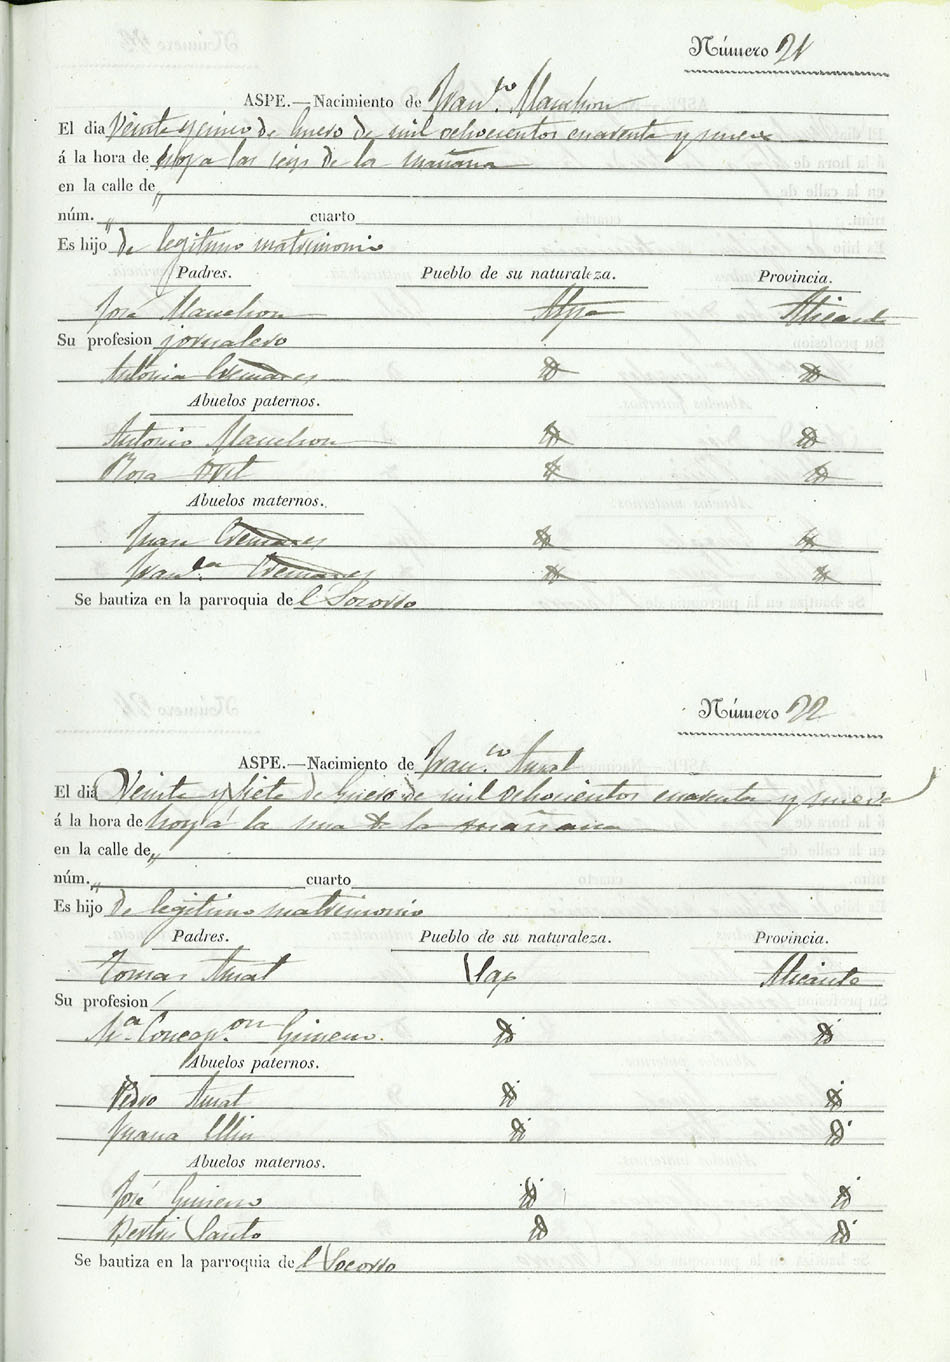 Número 21
ASPE.—Nacimiento de Fran.co Manchon
El dia Veinte y cinco de Enero de mil ochocientos cuarenta y nueve
á la hora de hoy a las seis de la mañana
en la calle de „
núm. „ cuarto
Es hijo de legitimo matrimonio
Padres. Pueblo de su naturaleza. Provincia.
José Manchon Aspe Alicante
Su profesion jornalero
Antonia Cremares id id
Abuelos paternos.
Antonio Manchon id id
Rosa id id
Abuelos maternos.
Juan Cremares id id
Fran.ca Cremares id id
Se bautiza en la parroquia de l Socorro
Número 22
ASPE.—Nacimiento de Fran.co Amat
El dia Veinte y siete de Enero de mil ochocientos cuarenta y nueve
á la hora de hoy á la una de la mañana
en la calle de „
núm. „ cuarto
Es hijo de legitimo matrimonio
Padres. Pueblo de su naturaleza. Provincia.
Tomas Amat Sax Alicante
Su profesion
M.a Concep.on Gimeno. id id
Abuelos paternos.
Pedro Amat id id
Juana id id
Abuelos maternos.
José Gimeno id id
Santo id id
Se bautiza en la parroquia de l Socorro